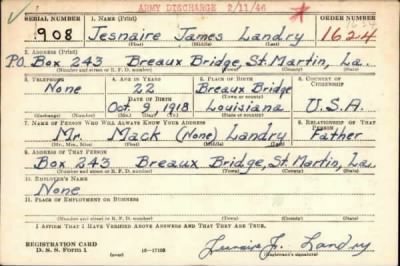 ARMY DISCHARGE 2/11/46
SERIAL NUMBER 1. NAME (Print) ORDER NUMBER
908 Jesnaire James Landry 1624
(First) (Middle) (Last)
2. ADDRESS (Print)
P.O. Box 243 Breaux Bridge, St. Martin, La.
(Number and street or R. F. D. number) (Town) (County) (State)
3. TELEPHONE 4. AGE IN YEARS 5. PLACE OF BIRTH 6. COUNTRY OF CITIZENSHIP
None 22 Breaux Bridge
DATE OF BIRTH (Town or county)
Oct 9, 1918 Louisiana U.S.A.
(Exchange) (Number) (Mo.) (Day) (Yr.) (State or country)
7. NAME OF PERSON WHO WILL ALWAYS KNOW YOUR ADDRESS 8. RELATIONSHIP OF THAT PERSON
Mr. Mack (None) Landry Father
(Mr., Mrs., Miss) (First) (Middle) (Last)
9. ADDRESS OF THAT PERSON
Box 243 Breaux Bridge, St. Martin, La.
(Number and street or R. F. D. number) (Town) (County) (State)
10. EMPLOYER'S NAME
None
11. PLACE OF EMPLOYMENT OR BUSINESS
(Number and street or R. F. D. number) (Town) (County) (State)
I AFFIRM THAT I HAVE VERIFIED ABOVE ANSWERS AND THAT THEY ARE TRUE.
REGISTRATION CARD
D. S. S. Form 1 (over) 16—17105
Landry
(Registrant's signature)